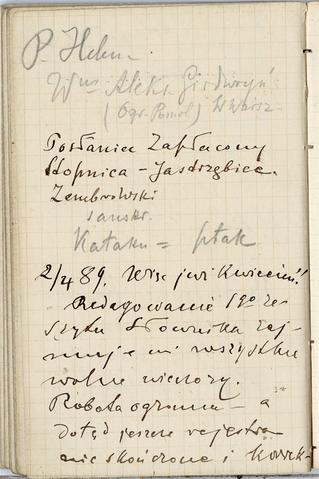 P. Helen
Aleks.
(Ogr. Pomol) W Warsz
Posłaniec Zapłacony
Stopnica – Jastrzębiec
Zembrowski
sanskr.
Kataku = ptak
2/4 89. Więc już kwiecień!
Redagowanie 1go ze-
szytu Słownika zaj-
muje mi wszystkie
wolne wieczory.
Robota ogromna – a
dotąd jeszcze rejestra
nie skończone i